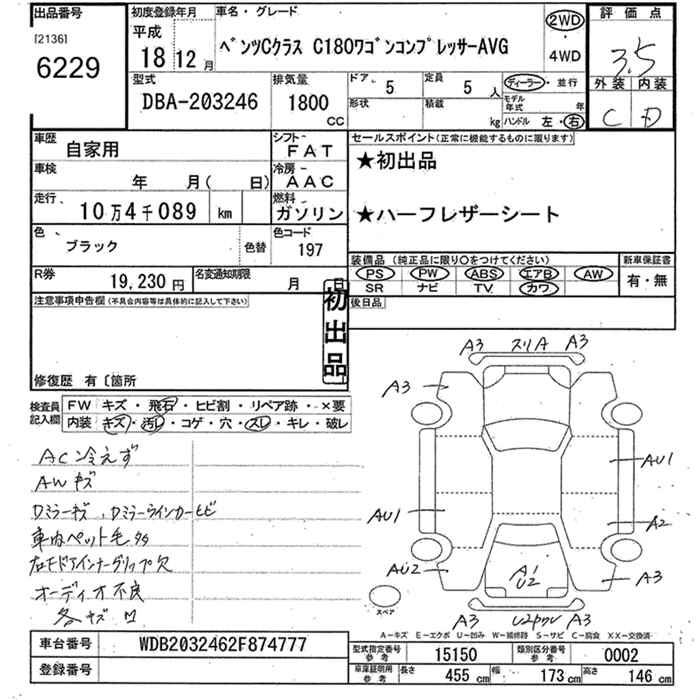 出品番号
[2136]
6229
初度登録年月
平成
18 12 月
車名・グレード
ベンツCクラス C180ワゴンコンプレッサーAVG
2WD
・
4WD
評価点
3.5
外装 内装
C D
型式
DBA-203246
排気量
1800
CC
ドア、 5
定員 5 人
形状
積載 kg
ディーラー・並行
モデル年式 年
ハンドル 左・右
車歴 自家用
シフト FAT
車検 年 月( 日)
冷房 AAC
走行、 10万4千089 km
燃料 ガソリン
色 、 ブラック 色替
色コード 197
R券 19,230 円
名変通知期限 月 日
セールスポイント(正常に機能するものに限ります)
★初出品
★ハーフレザーシート
装備品 (純正品に限り○をつけてください)
PS PW ABS エアB AW
SR ナビ TV カワ
新車保証書
有・無
後日品
注意事項申告欄(不具合内容等は具体的に記入して下さい)
初出品
修復歴 有〔箇所
検査員記入欄
FW キズ・飛石・ヒビ割・リペア跡・×要
内装 キズ・汚レ・コゲ・穴・スレ・キレ・破レ
AC冷えず
AWキズ
Dミラーキズ、Dミラーウインカーヒビ
車内ペット毛多
右FドアインナーグリップR欠
オーディオ不良
各キズ凹
A3 スリA A3
A3
AU1
AU1
A2
AU2
A1
U2
A3
A3 A3
スペア
A-キズ E-エクボ U-凹み W-補修跡 S-サビ C-腐食 XX-交換済
車台番号 WDB2032462F874777
登録番号
型式指定番号 参考 15150
類別区分番号 参考 0002
車庫証明用 参考 長さ 455 cm 幅 173 cm 高さ 146 cm